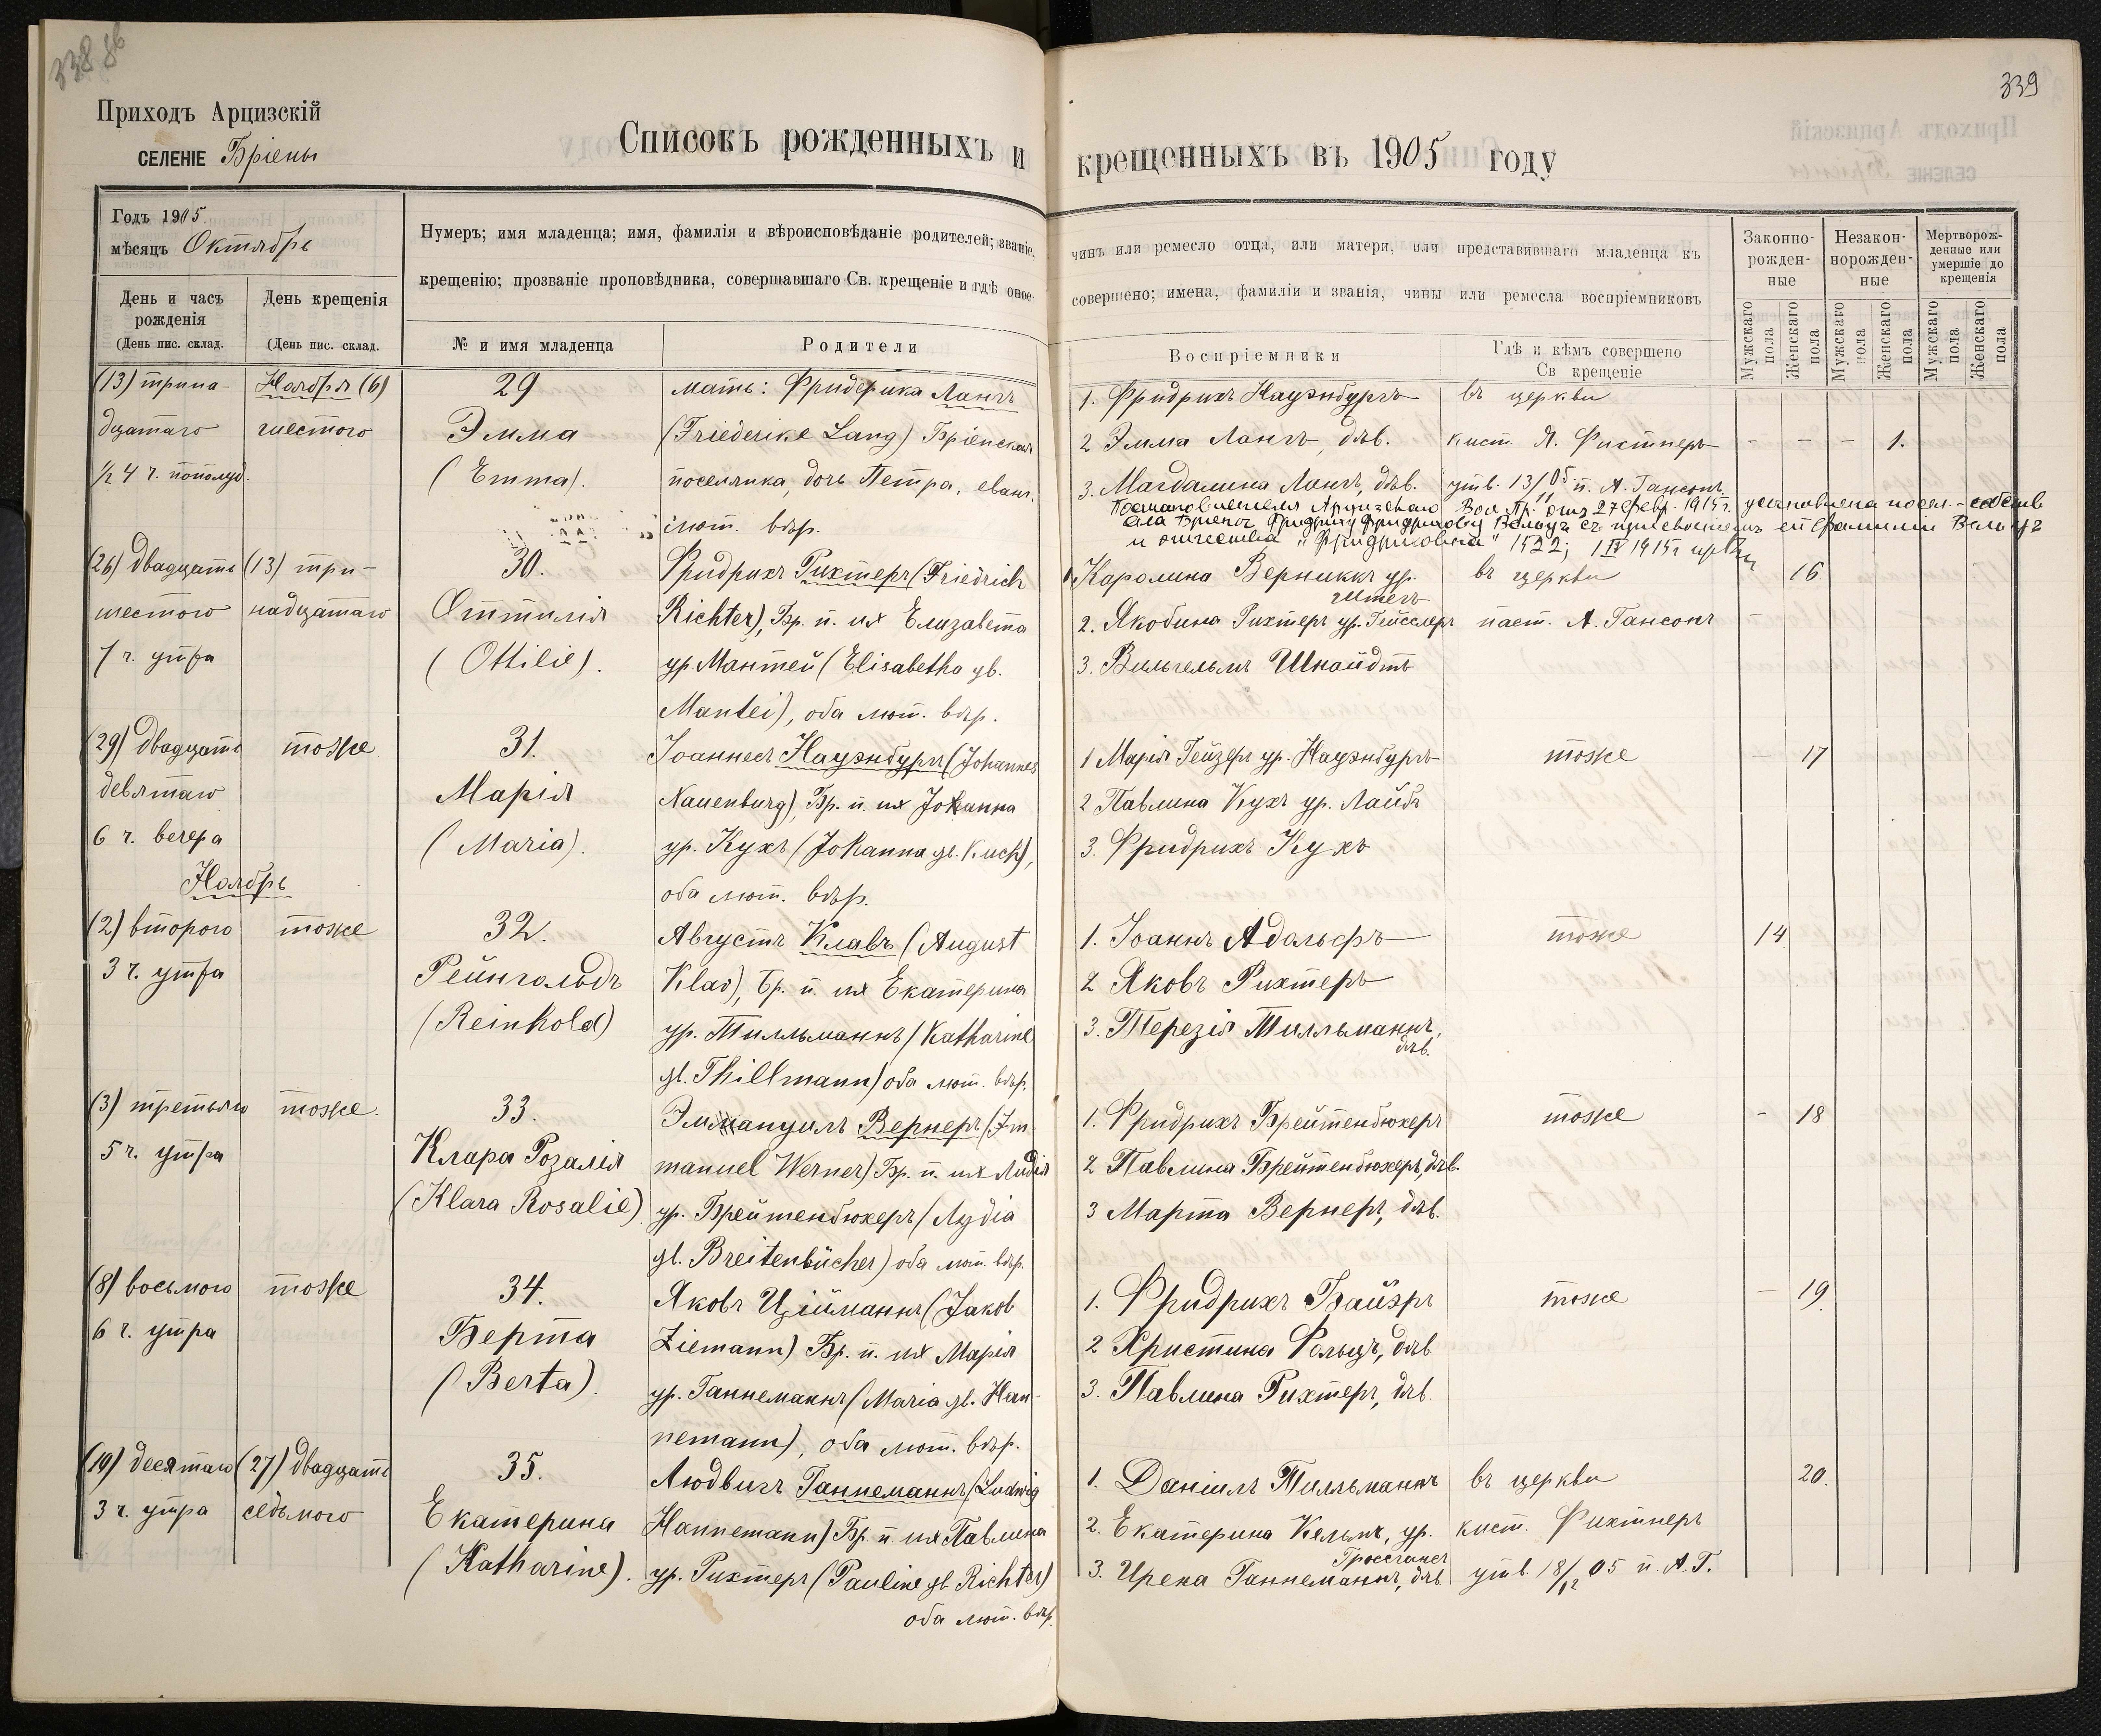 338 об
Приходъ Арцизскій
СЕЛЕНІЕ Бріены
Списокъ рожденныхъ и
Годъ 1905
мѣсяцъ Октябрь
День и часъ рожденія
(День пис. склад.
День крещенія
(День пис. склад.
Нумеръ; имя младенца; имя, фамилія и вѣроисповѣданіе родителей; званіе,
крещенію; прозваніе проповѣдника, совершавшаго Св. крещеніе и гдѣ оное
№ и имя младенца
Родители
(13) трина-
дцатаго
½ 4 ч. пополуд.
Ноября (6)
шестого
29
Эмма
(Emma).
мать: Фридерика Лангъ
(Friederike Lang) Бріенская
поселянка, дочь Петра, еванг.
лют. вѣр.
(26) двадцать
шестого
7 ч. утра
(13) три-
надцатаго
30.
Оттилія
(Ottilie).
Фридрихъ Рихтеръ (Friedrich
Richter), Бр. п. и ж Елизавета
ур. Мантей (Elisabetha gb.
Mantei), оба лют. вѣр.
(29) двадцать
девятаго
6 ч. вечера
тоже
31.
Марія
(Maria).
Іоаннесъ Науэнбургъ (Johannes
Nauenburg), Бр. п. и ж Іоханна
ур. Кухъ (Johanna gb. Kuch),
оба лют. вѣр.
Ноябрь
(2) второго
3 ч. утра
тоже
32.
Рейнгольдъ
(Reinhold)
Августъ Клавъ (August
Klav), Бр. п. и ж Екатерина
ур. Тилльманнъ (Katharine
gb. Thillmann) оба лют. вѣр.
(3) третьяго
5 ч. утра
тоже.
33.
Клара Розалія
(Klara Rosalie)
Эммануилъ Вернеръ (Im-
manuel Werner) Бр. п. и ж Лидія
ур. Брейтенбюхеръ (Lydia
gb. Breitenbücher) оба лют. вѣр.
(8) восьмого
6 ч. утра
тоже
34.
Берта
(Berta).
Яковъ Ційманнъ (Jakob
Ziemann) Бр. п. и ж Марія
ур. Ганнеманнъ (Maria gb. Han-
nemann), оба лют. вѣр.
(10) десятаго
3 ч. утра
(27) двадцать
седьмого
35.
Екатерина
(Katharine).
Людвигъ Ганнеманнъ (Ludwig
Hannemann) Бр. п. и ж Павлина
ур. Рихтеръ (Pauline gb. Richter)
оба лют. вѣр.
339
крещенныхъ въ 1905 году
чинъ или ремесло отца, или матери, или представившаго младенца къ
совершено; имена, фамиліи и званія, чины или ремесла воспріемниковъ
Воспріемники
Гдѣ и кѣмъ совершено
Св крещеніе
Законно-
рожден-
ные
Незакон-
норожден-
ные
Мертворож-
денные или
умершіе до
крещенія
Мужскаго пола
Женскаго пола
Мужскаго пола
Женскаго пола
Мужскаго пола
Женскаго пола
1. Фридрихъ Науэнбургъ
2 Эмма Лангъ, дѣв.
3. Магдалина Лангъ, дѣв.
въ церкви
кист. Я. Фихтнеръ
утв. 13/11 05 п. А. Гансонъ
- - - 1.
Постановленіемъ Арцизскаго Вол. Пр. отъ 27 февр. 1915 г.
села Бріены Фридриху Фридриховичу
и отчества "Фридриховна" 1522; 1 IV 1915 г
1 Каролина Верникке ур.
2. Якобина Рихтеръ ур. Гейсслеръ
3. Вильгельмъ Шнайдтъ
въ церкви
паст. А. Гансонъ
16
1 Марія Гейзеръ ур. Науэнбургъ
2 Павлина Кухъ ур. Лайбъ
3. Фридрихъ Кухъ
тоже
- 17
1. Іоаннъ Адольфъ
2 Яковъ Рихтеръ
3. Терезія Тилльманнъ,
дѣв.
тоже
14
1. Фридрихъ Брейтенбюхеръ
2 Павлина Брейтенбюхеръ, дѣв.
3 Марта Вернеръ, дѣв.
тоже
- 18
1. Фридрихъ Байэръ
2 Христина Фольцъ, дѣв
3. Павлина Рихтеръ, дѣв.
тоже
- 19
1. Даніилъ Тилльманнъ
2. Екатерина Кельмъ, ур.
Гроссгансъ
3. Ирена Ганнеманнъ, дѣв
въ церкви
кист. Фихтнеръ
утв. 18/12 05 п. А. Г.
20.